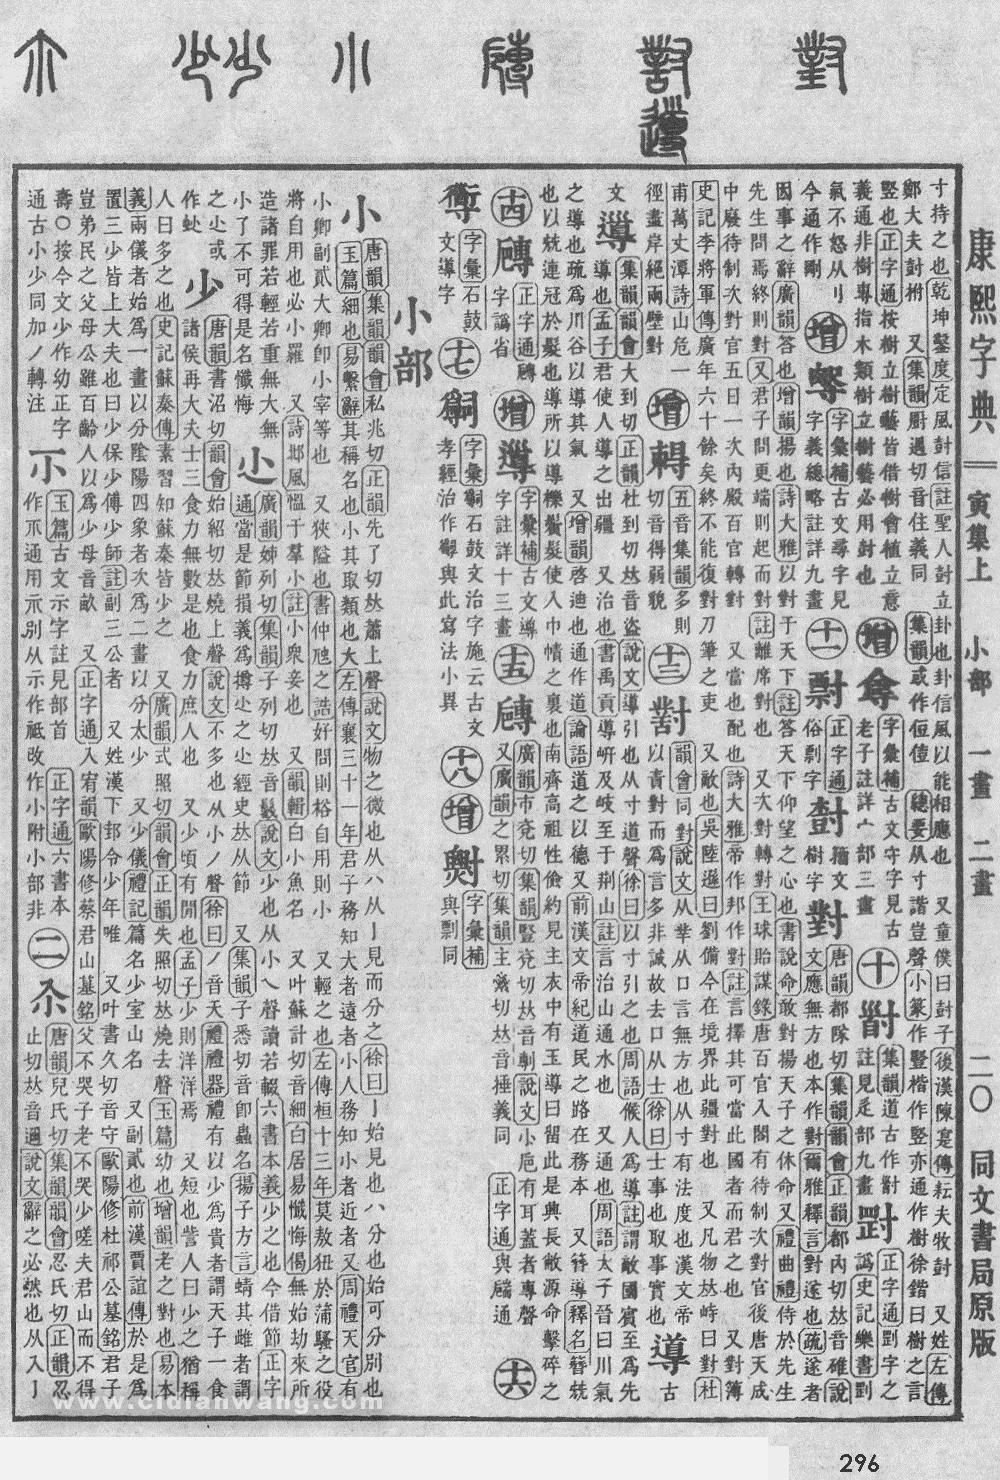 康熙字典 寅集上 小部 一畫 二畫 二〇 同文書局原版
寸持之也乾坤鑿度定風尌信註聖人尌立卦也卦信風以能相應也 又童僕曰尌子後漢陳寔傳耘夫牧尌 又姓左傳
鄭大夫尌拊 又集韻厨遇切音住義同
豎也正字通按樹立樹藝皆借樹會植立意
義通非樹專指木類樹立樹藝必用尌也
氣不怒从刂
今通作剛
字彙補古文尋字見
字義總略註詳九畫
字彙補古文守字見古
老子註詳宀部三畫
集韻道古作對
註見辵部九畫
正字通剄字之
譌史記樂書到
十一
正字通
俗剽字
籀文
樹字
對
唐韻都隊切集韻韻會正韻都內切𠀤音碓說
文應無方也本作對爾雅釋言對遂也疏遂者
因事之辭廣韻答也增韻揚也詩大雅以對于天下註答天下仰望之心也書說命敢對揚天子之休命又禮曲禮侍於先生
先生問焉終則對又君子問更端則起而對註離席對也 又次對轉對王球貽謀錄唐百官入閣有待制次對官後唐天成
中廢待制次對官五日一次內殿百官轉對 又當也配也詩大雅帝作邦作對註言擇其可當此國者而君之也 又對簿
史記李將軍傳廣年六十餘矣終不能復對刀筆之吏 又敵也吳陸遜曰劉備今在境界此疆對也 又凡物𠀤峙曰對杜
甫萬丈潭詩山危一
徑盡岸絕兩壁對
增
五音集韻多則
切音得弱貌
十三
對
韻會同對說文从丵从口言無方也从寸有法度也漢文帝
以責對而爲言多非誠故去口从士徐曰士事也取事實也
導
古
文
集韻韻會大到切正韻杜到切𠀤音盜說文導引也从寸道聲徐曰以寸引之也周語候人爲導註謂敵國賓至爲先
導也孟子君使人導之出疆 又治也書禹貢導岍及岐至于荆山註言治山通水也 又通也周語太子晉曰川氣
之導也疏爲川谷以導其氣 又增韻啓迪也通作道論語道之以德又前漢文帝紀道民之路在務本 又簪導釋名簪兟
也以兟連冠於髮也導所以導櫟鬢髮使入巾幘之裏也南齊高祖性儉約見主衣中有玉導曰留此是興長敝源命擊碎之
十四
正字通䏝
字譌省
增
字彙補古文導
字註詳十三畫
十五
廣韻市兖切集韻豎兖切𠀤音剸說文小巵有耳蓋者專聲
又廣韻之累切集韻主蘂切𠀤音捶義同
正字通與䏝通
十六
字彙石鼓
文導字
十七
字彙嗣石鼓文治字施云古文
孝經治作亂與此寫法小異
十八
增
字彙補
與剽同
小部
小
唐韻集韻韻會私兆切正韻先了切𠀤蕭上聲說文物之微也从八从丨見而分之徐曰丨始見也八分也始可分別也
玉篇細也易繫辭其稱名也小其取類也大左傳襄三十一年君子務知大者遠者小人務知小者近者又周禮天官有
小卿副貳大卿卽小宰等也 又狹隘也書仲虺之誥好問則裕自用則小 又輕之也左傳桓十三年莫敖狃於蒲騷之役
將自用也必小羅 又詩邶風慍于羣小註小衆妾也 又韻輯白小魚名 又叶蘇計切音細白居易懺悔偈無始劫來所
造諸罪若輕若重無大無
小了不可得是名懺悔
廣韻姊列切集韻子列切𠀤音蠽說文少也从小乀聲讀若輟六書本義少之也今借節正字
通當是節損義爲撙尐之尐經史𠀤从節 又集韻子悉切音卽蟲名揚子方言蜻其雌者謂
之尐或
作䖣
少
唐韻書沼切韻會始紹切𠀤燒上聲說文不多也从小丿聲徐曰丿音夭禮禮器禮有以少爲貴者謂天子一食
諸侯再大夫士三食力無數是也食力庶人也 又少頃有閒也孟子少則洋洋焉 又短也訾人曰少之猶稱
人曰多之也史記蘇秦傳素習知蘇秦皆少之 又廣韻式照切韻會正韻失照切𠀤燒去聲玉篇幼也增韻老之對也易本
義兩儀者始爲一畫以分陰陽四象者次爲二畫以分太少 又少儀禮記篇名少室山名 又副貳也前漢賈誼傳於是爲
置三少皆上大夫也曰少保少傅少師註副三公者 又姓漢下邳令少年唯 又叶書久切音守歐陽修杜祁公墓銘君子
豈弟民之父母公雖百齡人以爲少母音畝 又正字通人宥韻歐陽修蔡君山墓銘父不哭子老不哭少嗟夫君山而不得
壽〇按今文少作幼正字
通古小少同加丿轉注
玉篇古文示字註見部首 正字通六書本
作爪通用示別从示作祗改作小附小部非
二
尒
唐韻兒氏切集韻韻會忍氏切正韻忍
止切𠀤音邇說文辭之必然也从入丨
www.cidianwang.com
296